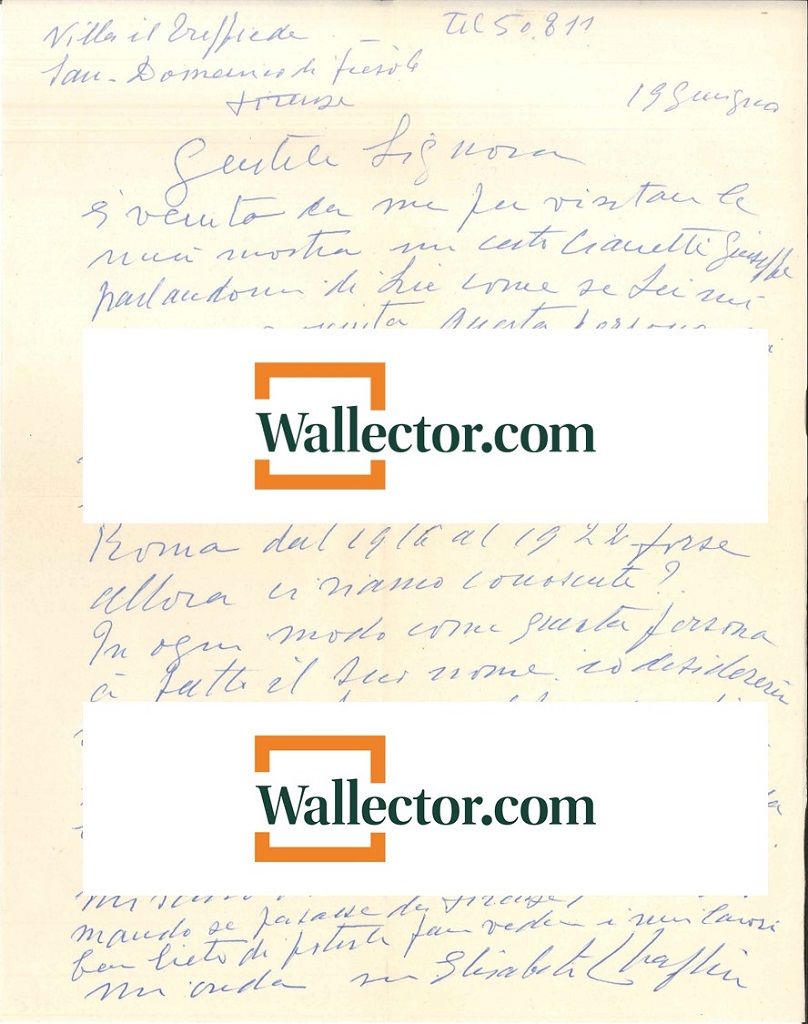 Villa il Treppiede Tel 50.811
San Domenico di Fiesole
Firenze
19 Giugno
Gentile Signora
È venuto da me per visitare le
mia mostra un certo Cianetti Giuseppe
parlandomi di Lei come se Lei mi
Questa persona
Wallector.com
Roma dal 1916 al 1922 forse
allora ci siamo conosciute?
In ogni modo come questa persona
à fatto il Suo nome io desidererei
Wallector.com
mando se passasse da Firenze,
ben lieta di poterle far vedere i miei lavori
mi creda Elisabeth Chaplin